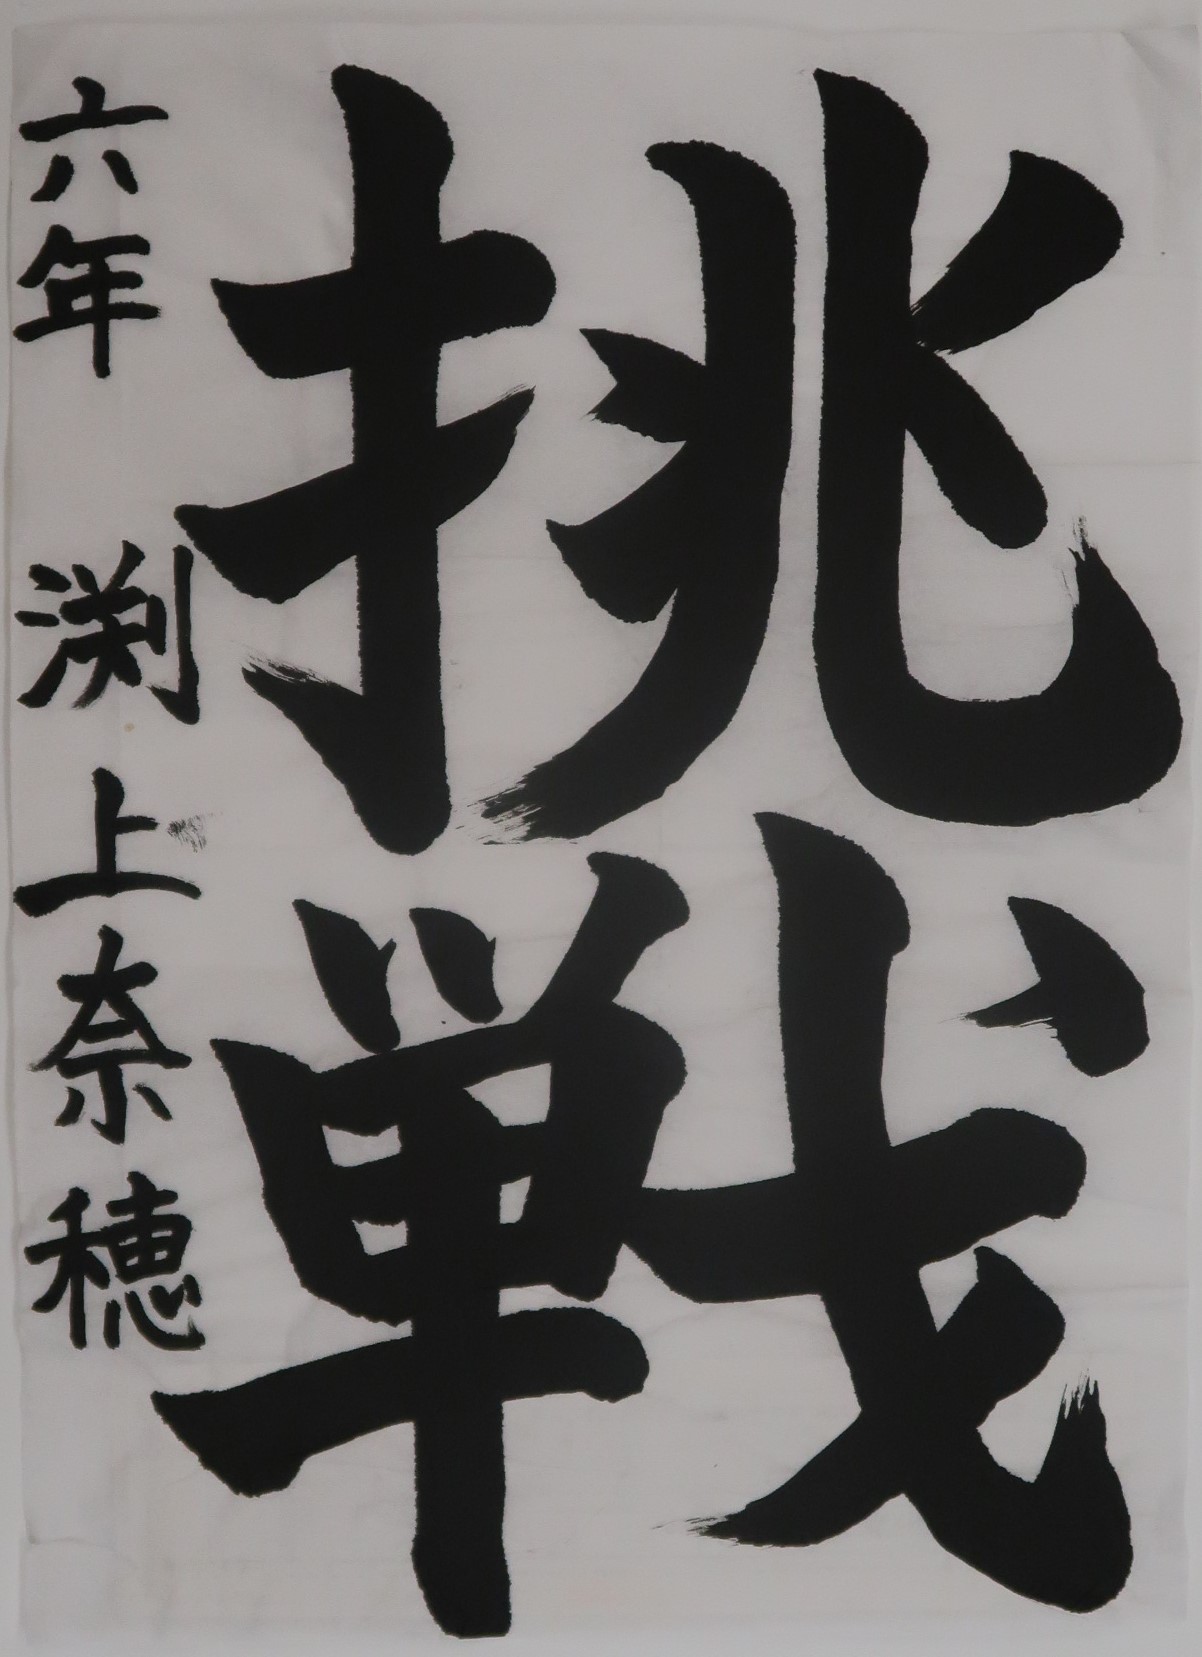 挑戦
六年 渕上奈穂